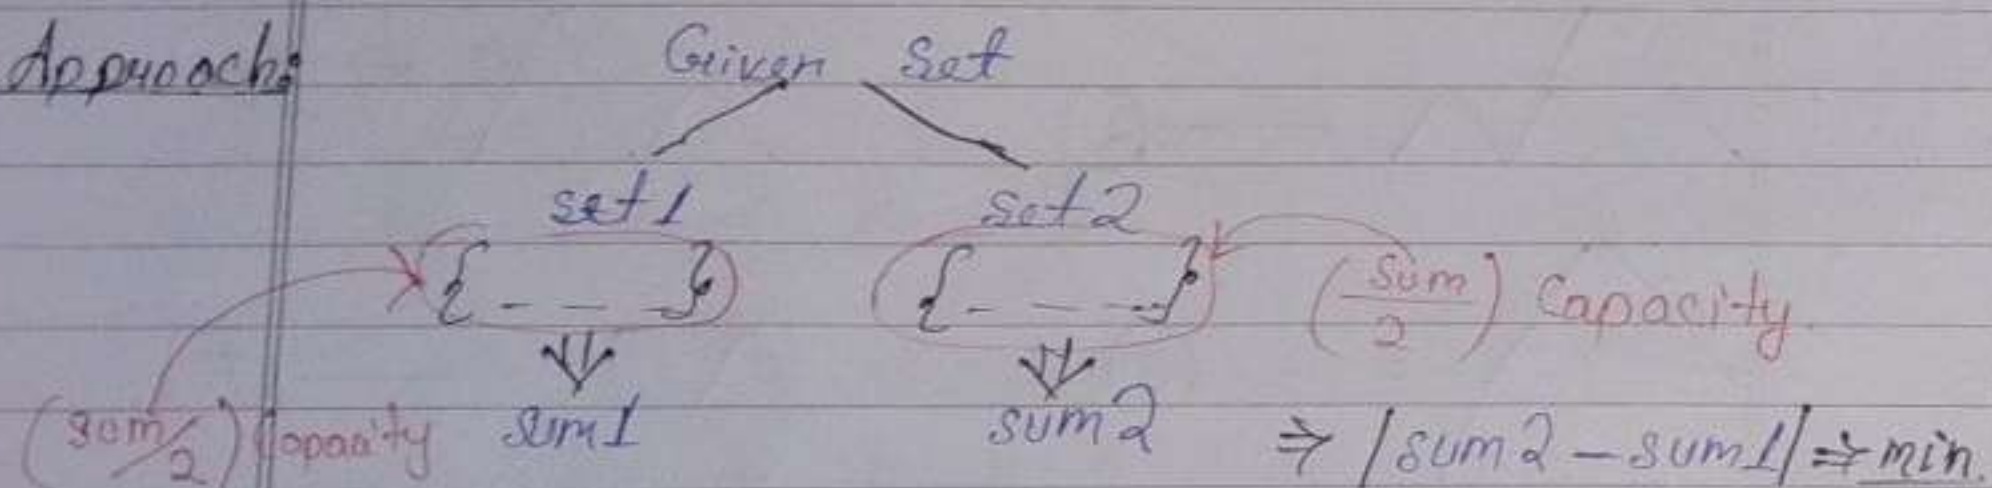 Approach: Given Set
set1 set2
{ _ _ _ } { _ _ _ } (sum/2) Capacity
(sum/2) Capacity sum1 sum2 ⇒ |sum2 - sum1| ⇒ min.